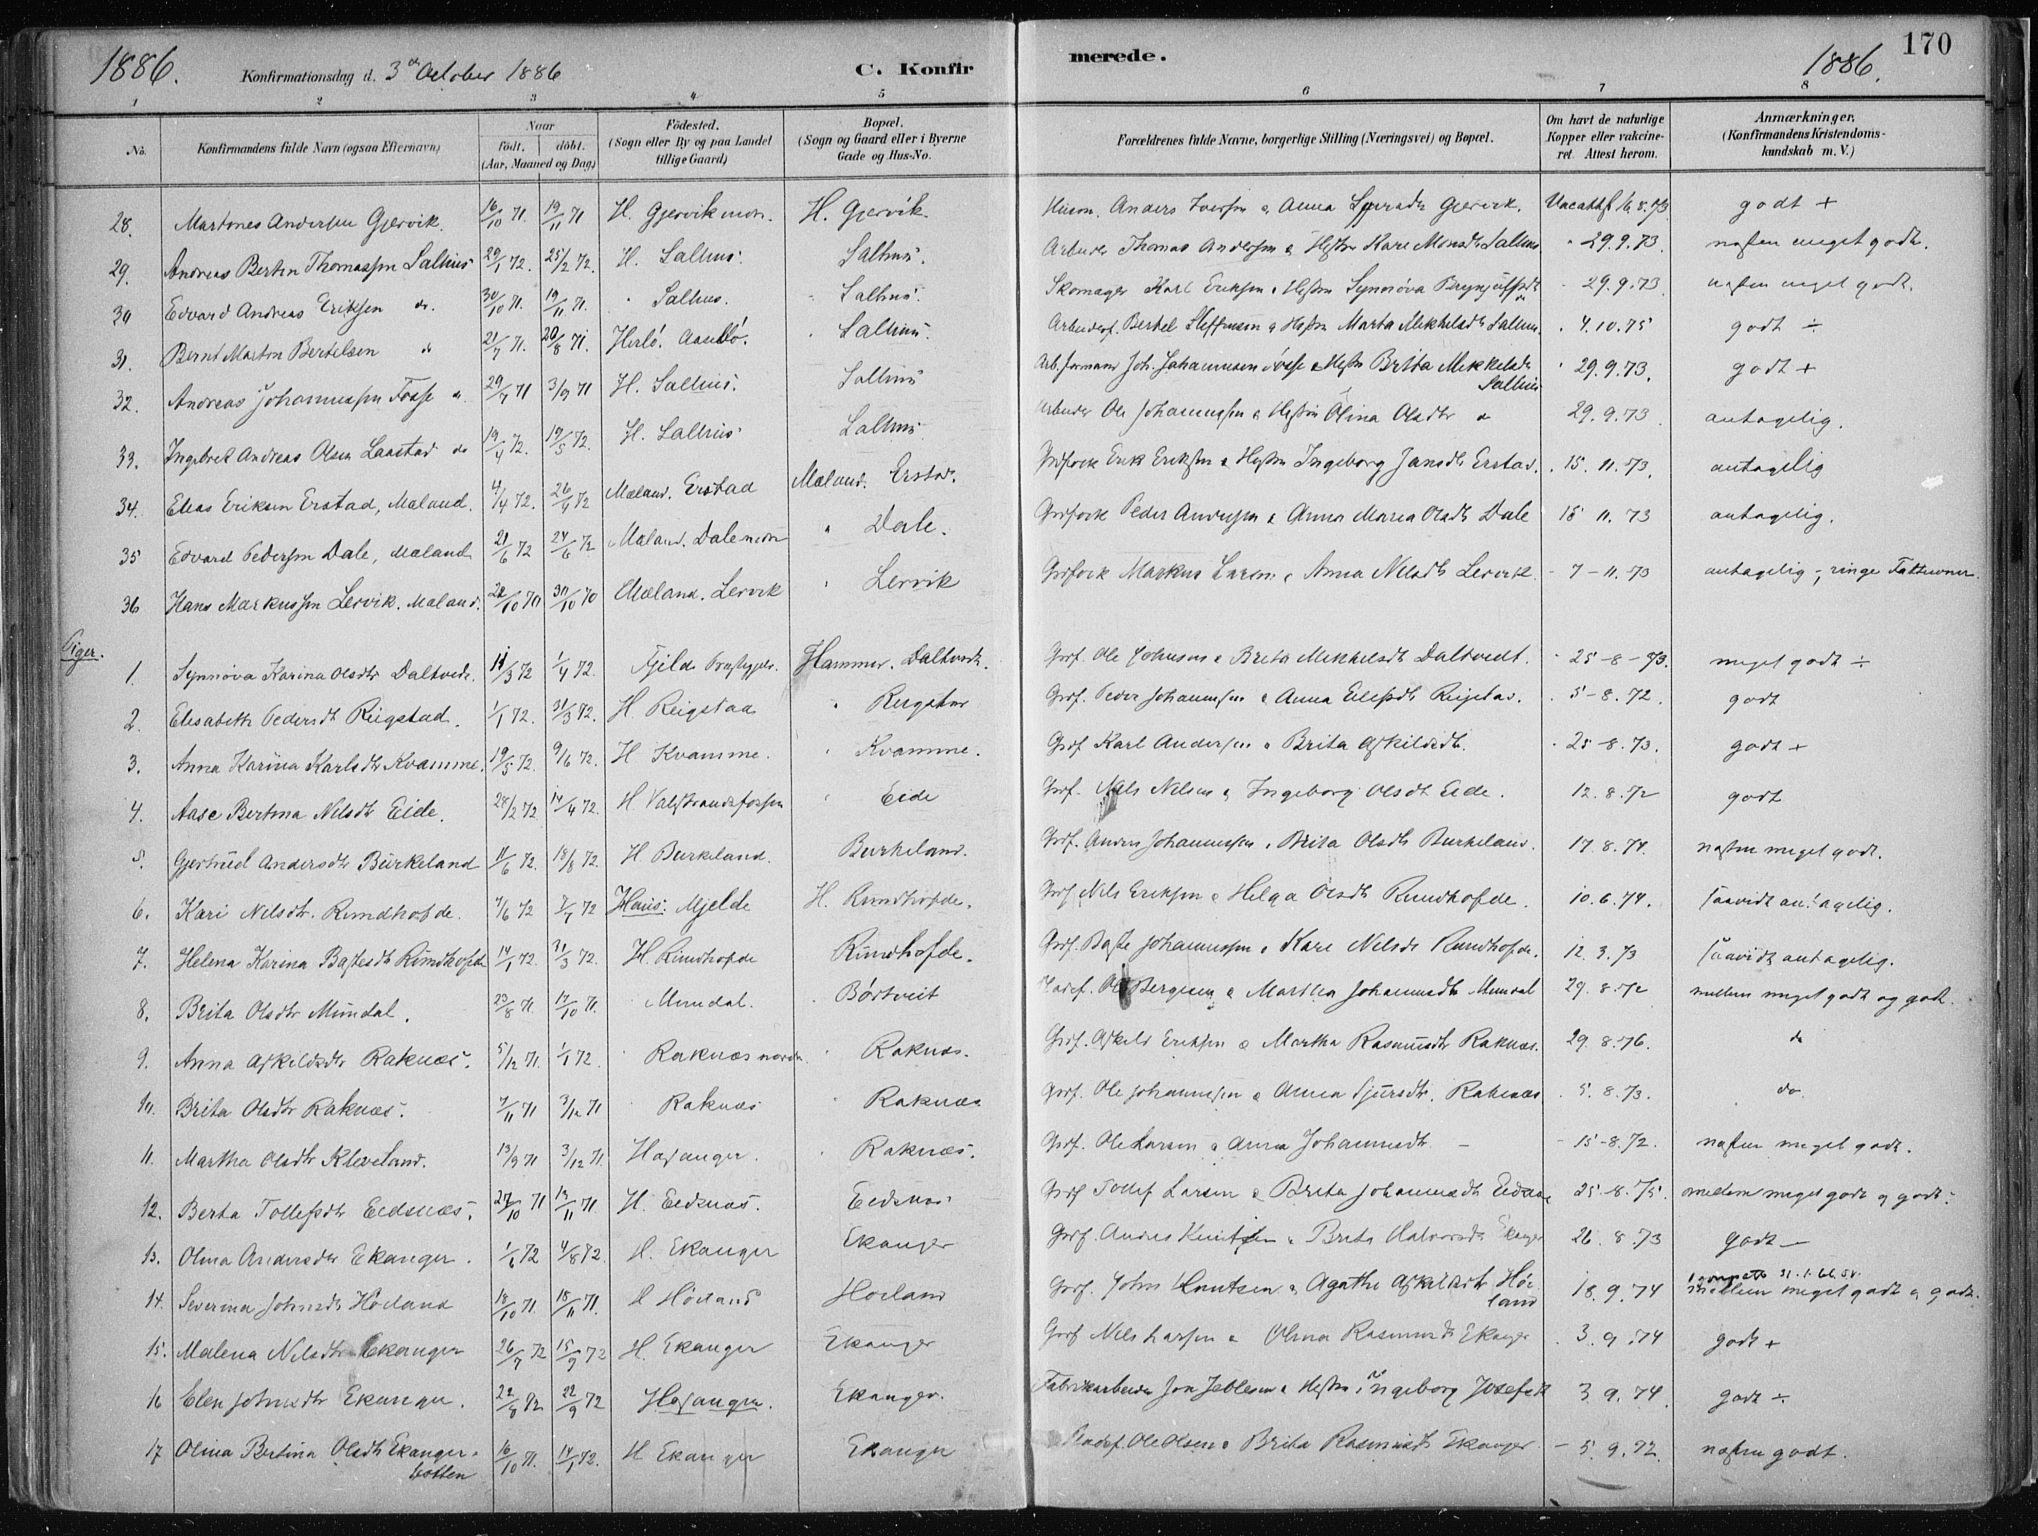 1886. Konfirmationsdag d. 3de October 1886 C. Konfirmerede. 1886. 170
1 2 3 4 5 6 7 8
No. Konfirmandens fulde Navn (ogsaa Efternavn) Naar født. døbt. (Aar, Maaned og Dag) Fødested. (Sogn eller By og paa Landet tillige Gaard) Bopæl. (Sogn og Gaard eller i Byerne Gade og Hus-No. Forældrenes fulde Navne, borgerlige Stilling (Næringsvei) og Bopæl. Om havt de naturlige Kopper eller vakcineret. Attest herom. Anmærkninger. (Konfirmandens Kristendomskundskab m. V.)
28. Martones Andersen Gjervik. 16/10 71. 19/11 71 H. Gjervik H. Gjervik Anders Iversen & Anna Gjervik. Vacattst 16.8.73 godt +
29. Andreas Bertin Thomassen Salhus 29/1 72. 25/2 72. H. Salhus. Salhus. Arbeider Thomas Andersen & Hustru Kari Monsdt Salhus " 29.9.73. næsten meget godt.
30 Edvard Andreas Eriksen do. 30/10 71. 19/11 71. " Salhus. " Salhus. Skomager Karl Eriksen & Hustru Synnøva " 29.9.73. næsten meget godt.
31. Bernt Martin Bertelsen do 21/7 71. 20/8 71. Herlø. " Salhus. Bertel Steffensen & Hustru Marta Mikkelsdt Salhus. " 4.10.75 godt ÷
32. Andreas Johannessen Fosse do. 29/7 71 3/9 71 H. Salhus. Salhus Arb. formann Joh. Johannessen Fosse & Hustru Brita Mikkelsdt Salhus " 29.9.73. godt +
33. Ingebret Andreas Olsen Laastad do 19/4 72. 19/5 72. H. Salhus. Salhus. Arbeider Ole Johannessen & Hustru Olina Olsdtr do 29.9.73 antagelig.
34. Elias Eriksen Erstad, Mæland. 4/4 72. 26/4 72 Mæland. Erstad Mæland. Erstad. Erik Eriksen & Hustru Ingeborg Jansdt Erstad. " 15.11.73. antagelig
35 Edvard Pedersen Dale, Mæland 21/6 72 24/6 72 Mæland. Dale " Dale. Peder Andersen & Anna Maria Olsdt Dale 15 11.73 antagelig.
36 Hans Markussen Lervik. Mæland. 28/10 70 30/10 70 Mæland. Lervik " Lervik Markus Larsen & Anna Nilsdt Lervik - 7-11.73 antagelig -; ringe Fatteevner
Piger.
1. Synnøva Karina Olsdtr Daltvedt. 11/3 72 1/4 72. Fjelds Præstegjeld. Hammer. Daltvedt. Grdf. Ole Johnsen & Brita Mikkelsdt Daltvedt. " 25-8-73. meget godt ÷
2. Elisabeth Pedersdt Reigstad. 1/1 72. 31/3 72. H. Reigstad " Reigstad Grdf. Peder Johannessen & Anna Reigstad. " 5-8.72. godt
3. Anna Karina Karlsdtr Kvamme. 19/5 72. 9/6 72. H Kvamme. " Kvamme. Grdf Karl Andersen & Brita Askildsdt. " 25-8.73. godt +
4. Aase Bertina Nilsdtr Eide. 28/2 72 14/4 72. H Valestrandsfossen " Eide Grdf. Nils Nilsen & Ingeborg Olsdt Eide. 12.8.72 godt
5. Gjertrud Andersdtr Birkeland 11/6 72. 18/8 72. H Birkeland. Birkeland. Grdf. Anders Johannessen & Brita Olsdt Birkeland. 17.8.74. næsten meget godt.
6. Kari Nilsdtr. Rundhofde. 4/6 72 7/7 72 Haus: Mjelde H. Rundhofde. Grdf. Nils Eriksen & Helga Olsdt Rundhofde. 10.6.74. saavidt antagelig.
7. Helena Karina Rundhofde 14/1 72. 31/3 72. H. Rundhofde Rundhofde. Grdf. Johannessen & Kari Nilsdt Rundhofde. 12.3.73 saavidt antagelig.
8. Brita Olsdtr Mundal. 23/8 71. 17/10 71. " Mundal. Børtveit Ole Bergesen & Martha Johannesdt Mundal 29.8.72 mellem meget godt og godt.
9. Anna Askildsdtr Raknæs. 5/12 71. 1/1 72. " Raknæs nordre " Raknæs. Grdf. Askild Eriksen & Martha Rasmusdtr Raknæs. 29.8.76. do
10. Brita Olsdtr Raknæs. 7/11 71 3/12 71 Raknæs " Raknæs Grdf. Ole Johannessen & Anna Sjursdtr. Raknæs " 5.8.73. do.
11. Martha Olsdtr Kleveland. 13/9 71 3/12 71. Hosanger. " Raknæs. Grdf. Ole Larsen & Anna Johannesdt - - 15-8.72. næsten meget godt.
12. Berta Tollefsdtr Eidsnæs. 27/10 71 19/11 71. H. Eidsnæs. Eidsnæs. Grdf Tollef Larsen & Brita Johannesdt Eidsnæs 25-8.75. mellem meget godt og godt.
13. Olina Andersdtr Ekanger. 1/6 72 4/8 72. H. Ekanger Ekanger Grdf. Anders Knutsen & Brita Halvorsdt Ekanger 26.8.73 godt -
14. Severina Johnsdt Høiland 18/10 71. 18/11 71. H Høiland Høiland Grdf. John Knutsen & Agathe Askildsdt Høiland 18.9.74 mellem meget godt og godt.
15. Malena Nilsdtr Ekanger 26/7 72 15/9 72 H. Ekanger Ekanger Grdf Nils Larsen & Olina Rasmusdt Ekanger . 3.9.74 godt +
16 Elen Johnsdtr Ekanger. 22/8 72 22/9 72 Hosanger. Ekanger. Fabrikarbeider Jon & Hustru Ingeborg Josefsdt 3 9.74. godt ÷
17 Olina Bertina Olsdtr Ekanger- 16/10 71. 14/1 72. H Ekanger Ekanger Ole Olsen & Brita Rasmusdt Ekanger - 5.9.72. næsten godt.